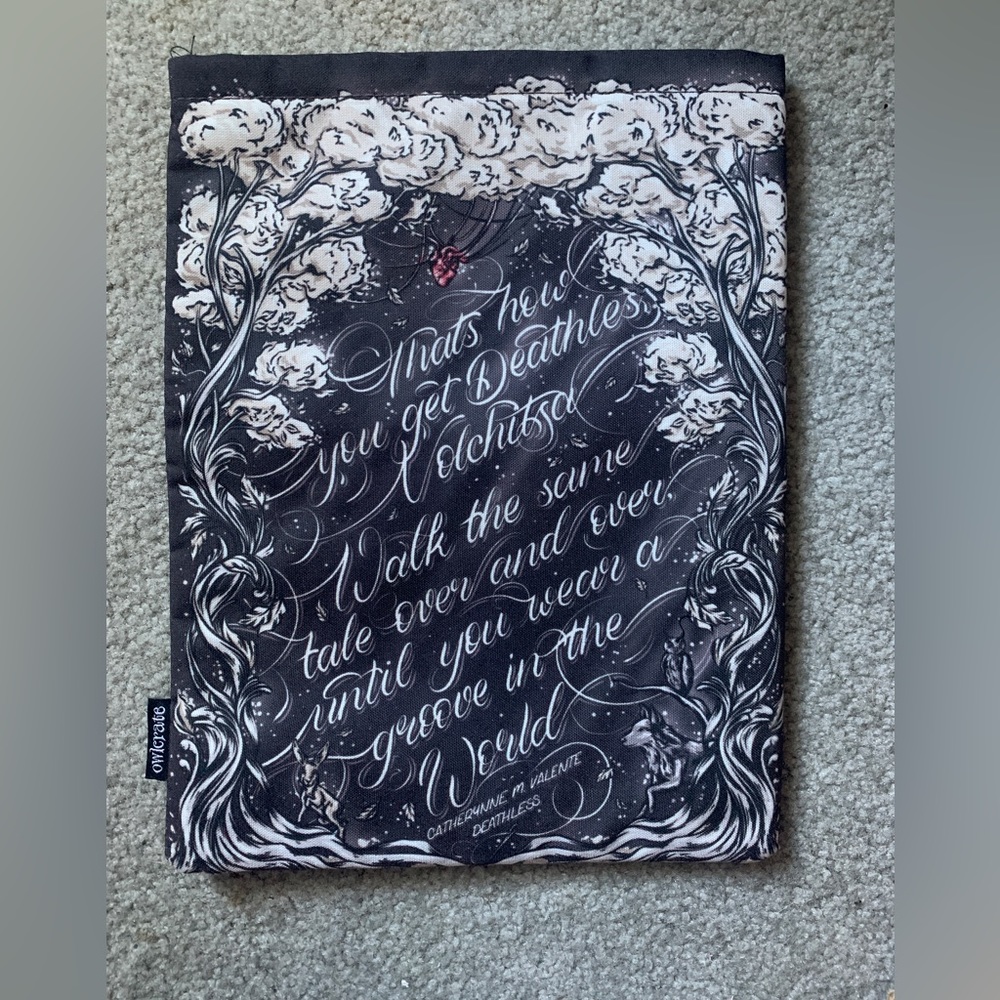 Thats how
you get Deathless,
Volchitsa
Walk the same
tale over and over,
until you wear a
groove in the
World
CATHERYNNE M. VALENTE
DEATHLESS
owlcrate